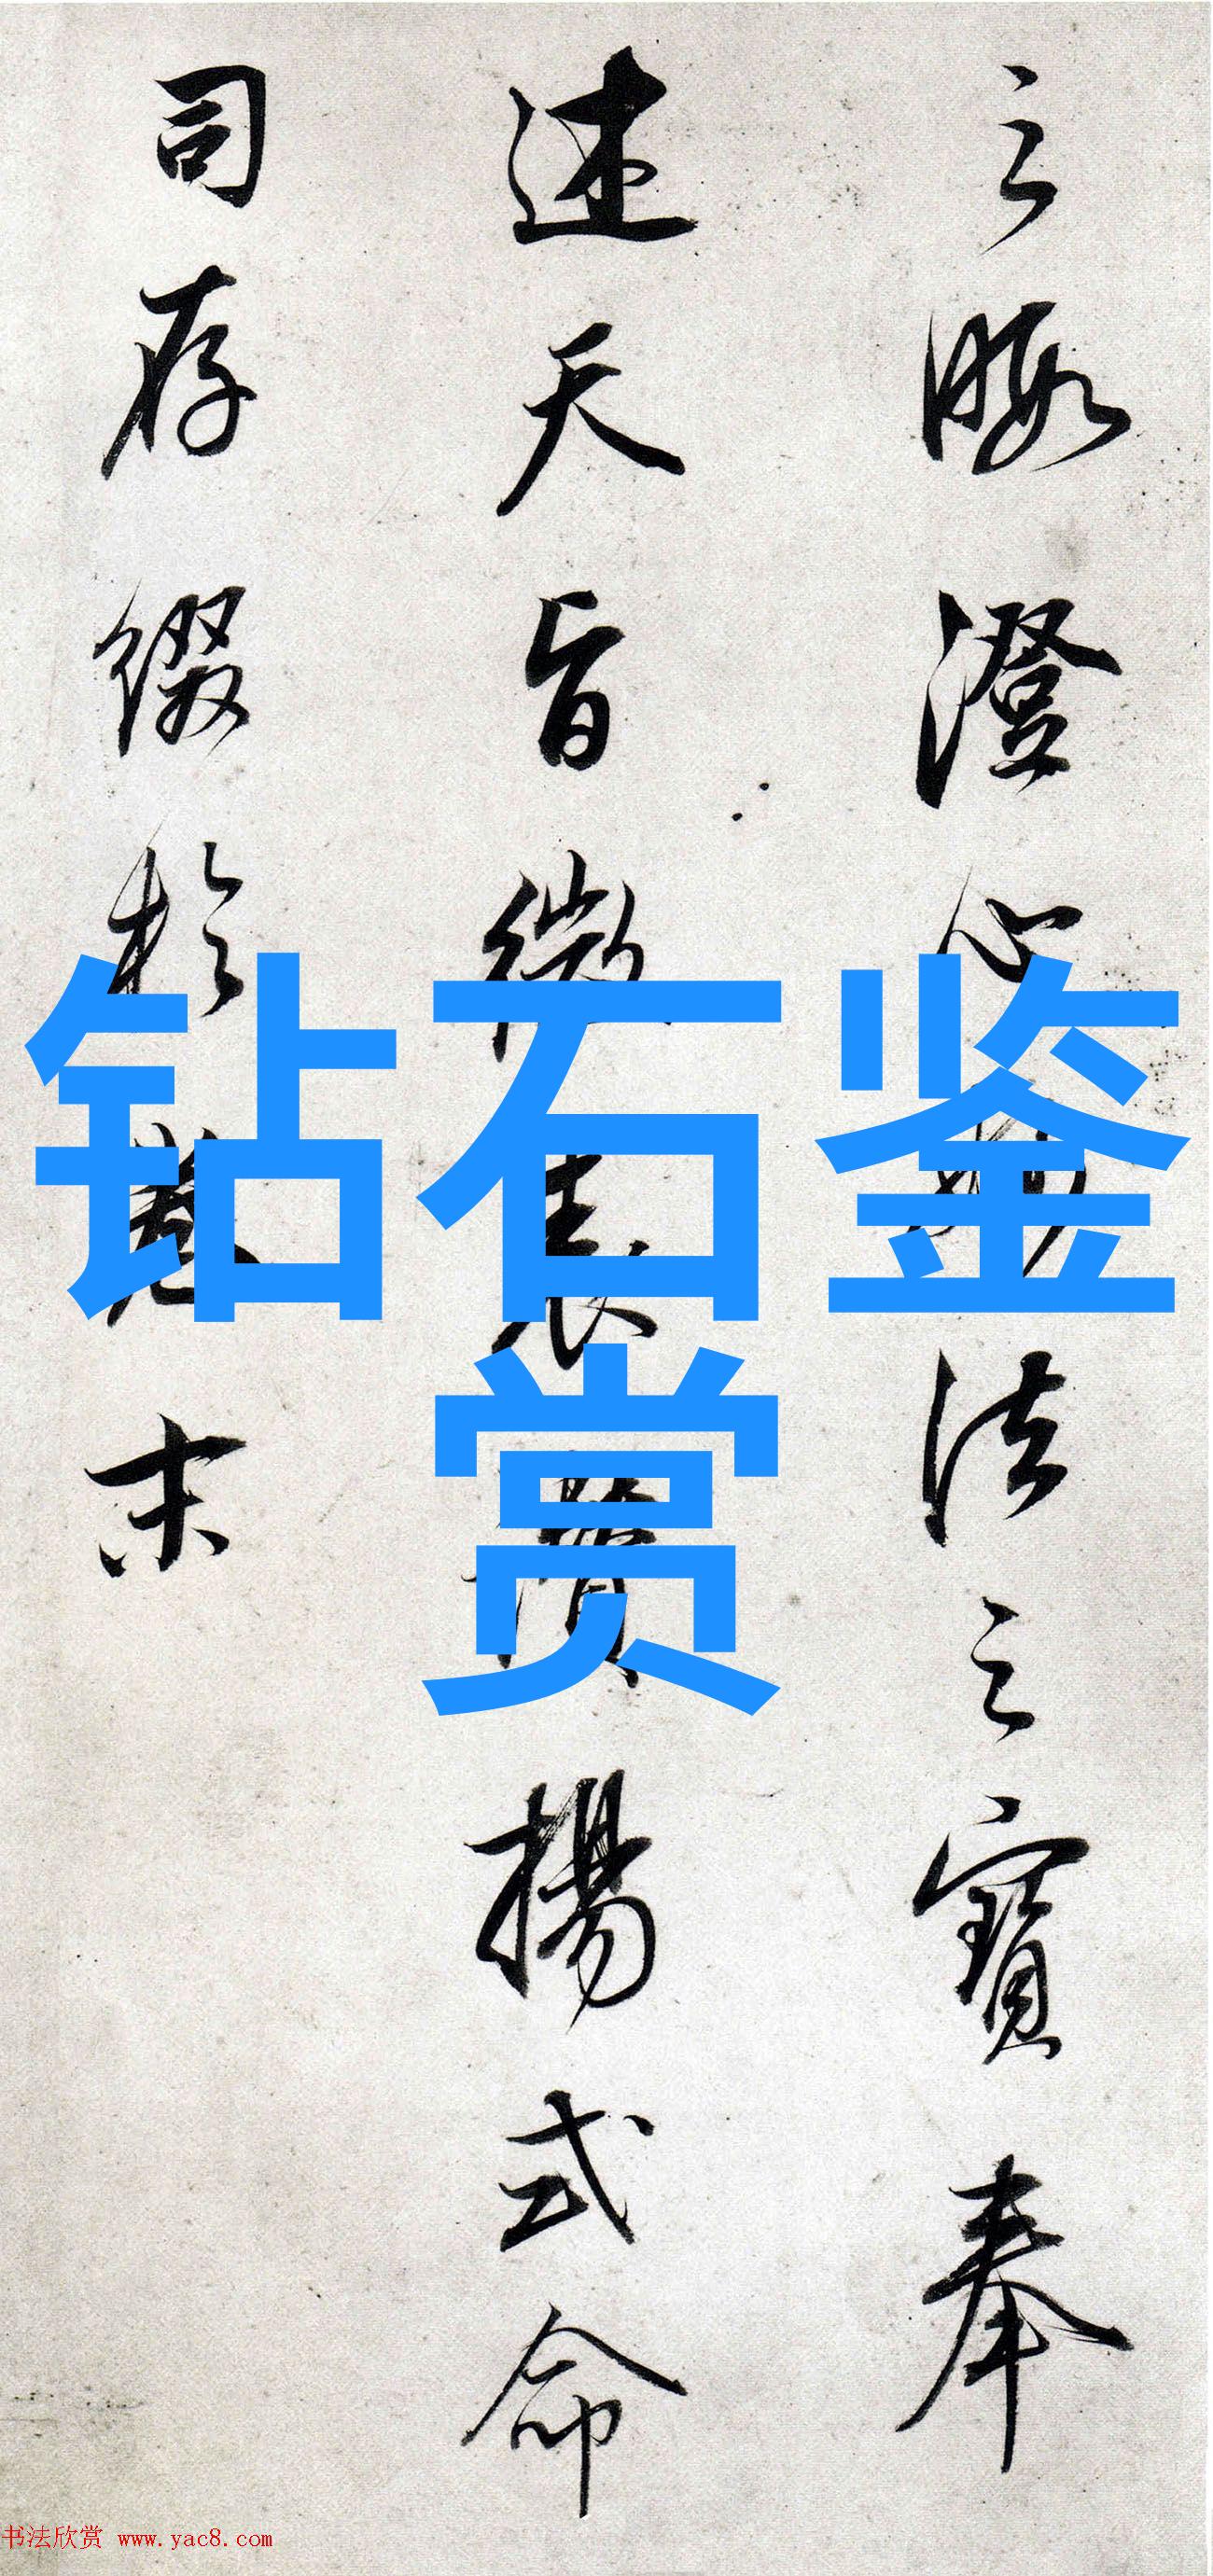 之暇澄心
法之寶奉
述天旨微表
揚式命
司存缀於卷末
钻石鉴
赏
书法欣赏 www.yac8.com